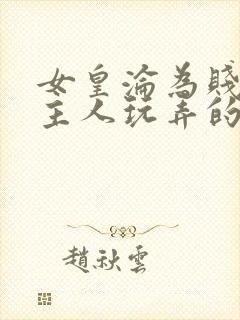 女皇淪為賤
主人玩弄的
趙秋雲